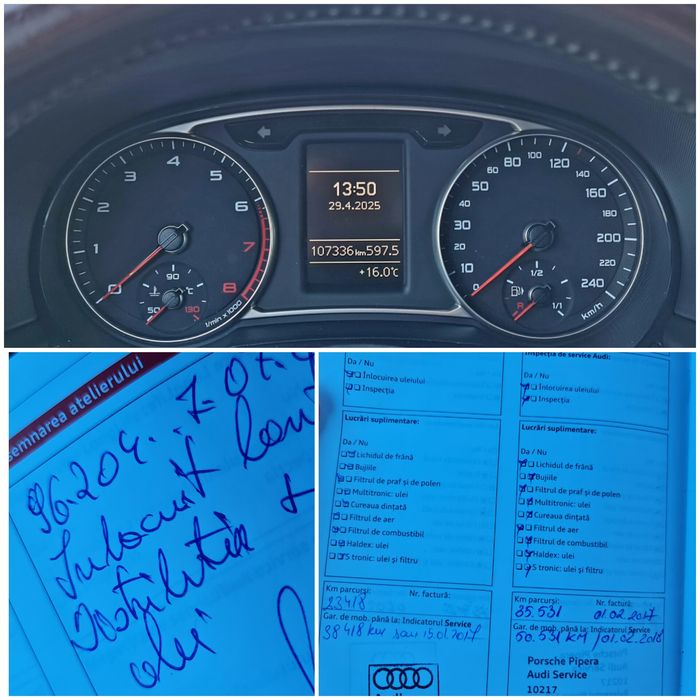 1 2 3 4 5 6 7 8
50 90 130 °C
1/min x 1000
13:50
29.4.2025
107336 km 597.5
+16.0°C
0 10 20 30 40 50 60 80 100 120 140 160 180 200 220 240
km/h
R 1/2 1/1
semnarea atelierului
96.204
ulei
Da / Nu
Înlocuirea uleiului
Inspecția
Lucrări suplimentare:
Da / Nu
Lichidul de frână
Bujiile
Filtrul de praf și de polen
Multitronic: ulei
Cureaua dințată
Filtrul de aer
Filtrul de combustibil
Haldex: ulei
S tronic: ulei și filtru
Km parcurși: Nr. factură:
23418
Gar. de mob. până la: Indicatorul Service
38418 km sau 15.01.2017
Inspecția de service Audi:
Da / Nu
Înlocuirea uleiului
Inspecția
Lucrări suplimentare:
Da / Nu
Lichidul de frână
Bujiile
Filtrul de praf și de polen
Multitronic: ulei
Cureaua dințată
Filtrul de aer
Filtrul de combustibil
Haldex: ulei
S tronic: ulei și filtru
Km parcurși: Nr. factură:
35.531 01.02.2017
Gar. de mob. până la: Indicatorul Service
50.531 KM / 01.02.2018
Porsche Pipera
Audi Service
10217